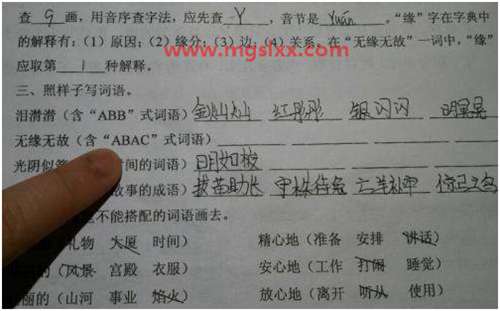 查 9 画，用音序查字法，应先查 Y ，音节是 Yuán 。“缘”字在字典中
的解释有：（1）原因；（2）缘分；（3）边；（4）关系。在“无缘无故”一词中，“缘”
www.mgslxx.com
应取第 1 种解释。
三、照样子写词语。
泪潸潸（含“ABB”式词语） 金灿灿 红彤彤 银闪闪
无缘无故（含“ABAC”式词语）
光阴似 间的词语） 日月如梭
故事的成语） 拔苗助长 守株待兔 亡羊补牢
不能搭配的词语画去。
礼物 大厦 时间） 精心地（准备 安排 讲话）
的（风景 宫殿 衣服） 安心地（工作 打闹 睡觉）
丽的（山河 事业 焰火） 放心地（离开 听从 使用）